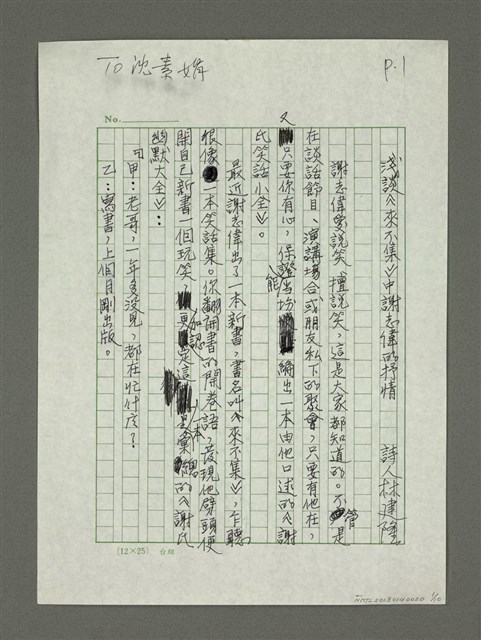 To 沈素娟
P.1
No.
淺談《來不集》中謝志偉的抒情　詩人林建隆
謝志偉愛說笑、擅說笑，這是大家都知道的。不管是
在談話節目、演講場合或朋友私下的聚會，只要有他在，
又只要你有心，保證當場能編出一本由他口述的《謝
氏笑話小全》。
最近謝志偉出了一本新書，書名叫《來不集》，乍聽
很像一本笑話集。你翻開書的開卷語，發現他劈頭便
開自己新書一個玩笑，更加認定這是一本彙總的《謝氏
幽默大全》：
「甲：老哥，一年多沒見，都在忙什麼？
乙：寫書，上個月剛出版。
(12×25)
NMTL20180140020 1/10